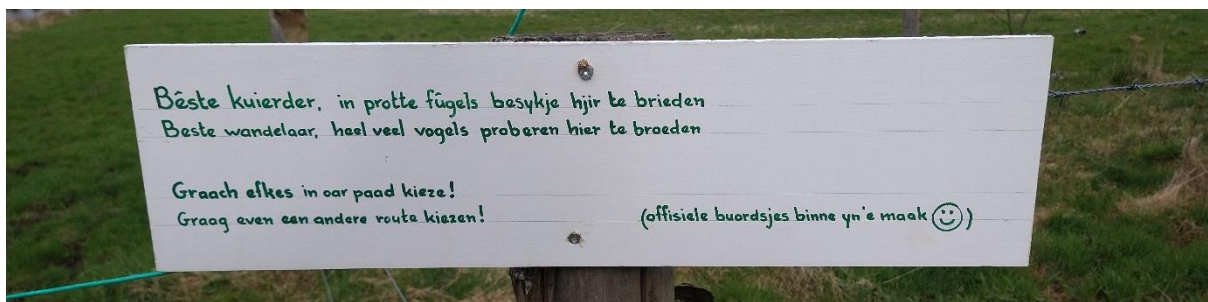 Bêste kuierder, in protte fûgels besykje hjir te brieden
Beste wandelaar, heel veel vogels proberen hier te broeden
Graach efkes in oar paad kieze!
Graag even een andere route kiezen!
(offisiele buordsjes binne yn'e maak ☺)